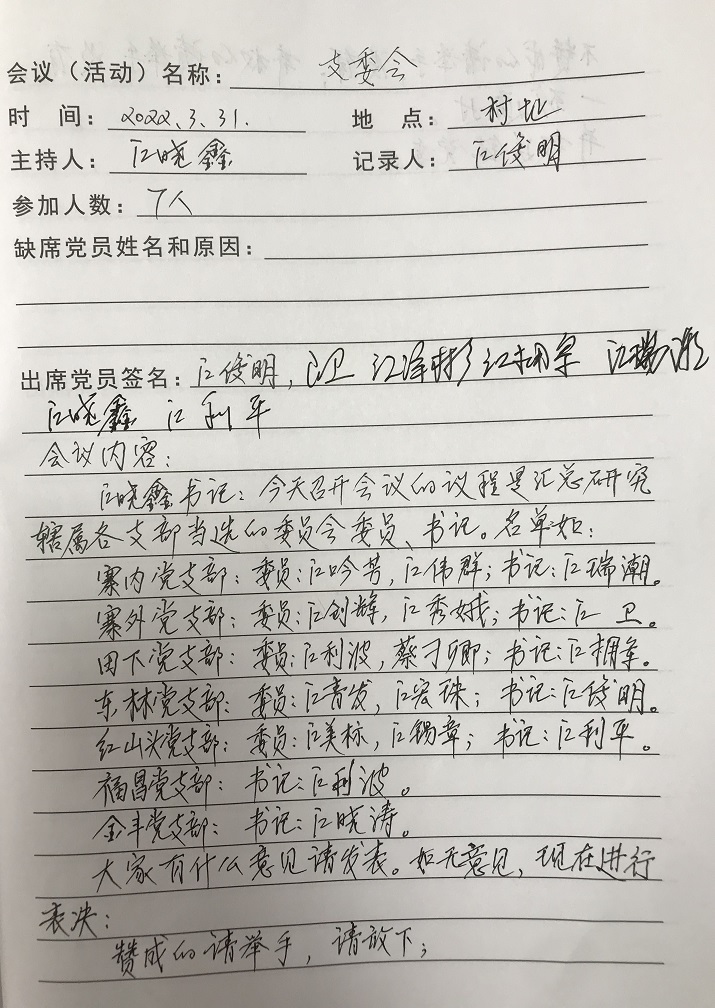 会议（活动）名称：支委会
时 间：2022.3.31. 地 点：村址
主持人：江晓鑫 记录人：江俊明
参加人数：7人
缺席党员姓名和原因：
出席党员签名：江俊明，江卫 江泽彬 江拥军 江瑞潮
江晓鑫 江利平
会议内容：
江晓鑫书记：今天召开会议的议程是汇总研究
辖属各支部当选的委员会委员、书记。名单如：
寨内党支部：委员：江吟芳，江伟群；书记：江瑞潮。
寨外党支部：委员：江创辉，江秀娥；书记：江 卫。
田下党支部：委员：江利波，蔡卿；书记：江拥军。
东林党支部：委员：江青发，江宏珠；书记：江俊明。
红山头党支部：委员：江美标，江锡章；书记：江利平。
福昌党支部：书记：江利波。
金丰党支部：书记：江晓涛。
大家有什么意见请发表。如无意见，现在进行
表决：
赞成的请举手，请放下；